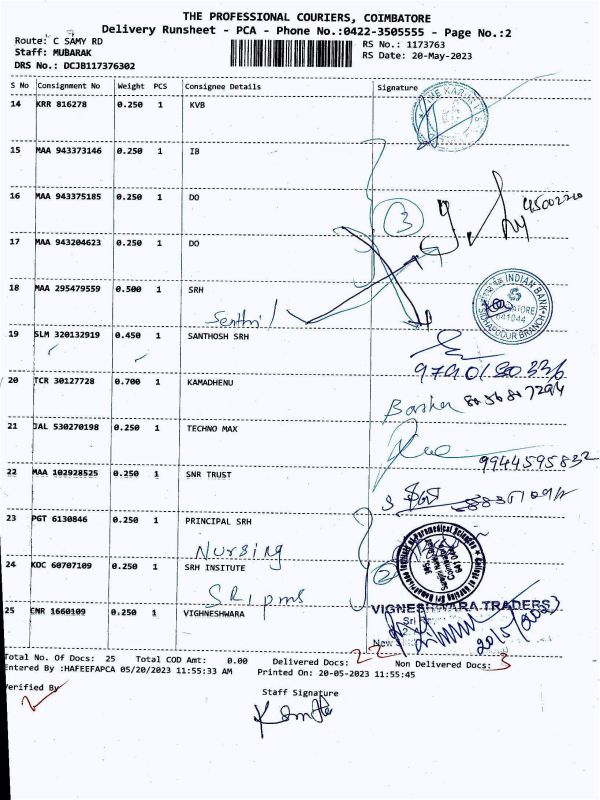 THE PROFESSIONAL COURIERS, COIMBATORE
Delivery Runsheet - PCA - Phone No.:0422-3505555 - Page No.:2
Route: C SAMY RD
RS No.: 1173763
Staff: MUBARAK
RS Date: 20-May-2023
DRS No.: DCJB117376302
S No Consignment No Weight PCS Consignee Details Signature
14 KRR 816278 0.250 1 KVB
15 MAA 943373146 0.250 1 IB
16 MAA 943375185 0.250 1 DO
17 MAA 943204623 0.250 1 DO
3
18 MAA 295479559 0.500 1 SRH
INDIAN BANK
641044
Senthil
19 SLM 320132919 0.450 1 SANTHOSH SRH
20 TCR 30127728 0.700 1 KAMADHENU
21 JAL 530270198 0.250 1 TECHNO MAX
9944595832
22 MAA 102928525 0.250 1 SNR TRUST
23 PGT 6130846 0.250 1 PRINCIPAL SRH
Nursing
24 KOC 60707109 0.250 1 SRH INSITUTE
2
SRIPMS
25 ENR 1660109 0.250 1 VIGHNESHWARA
VIGNESHWARA TRADERS
20/5/2023
Total No. Of Docs: 25 Total COD Amt: 0.00 Delivered Docs: 22 Non Delivered Docs: 3
Entered By :HAFEEFAPCA 05/20/2023 11:55:33 AM Printed On: 20-05-2023 11:55:45
Verified By
Staff Signature